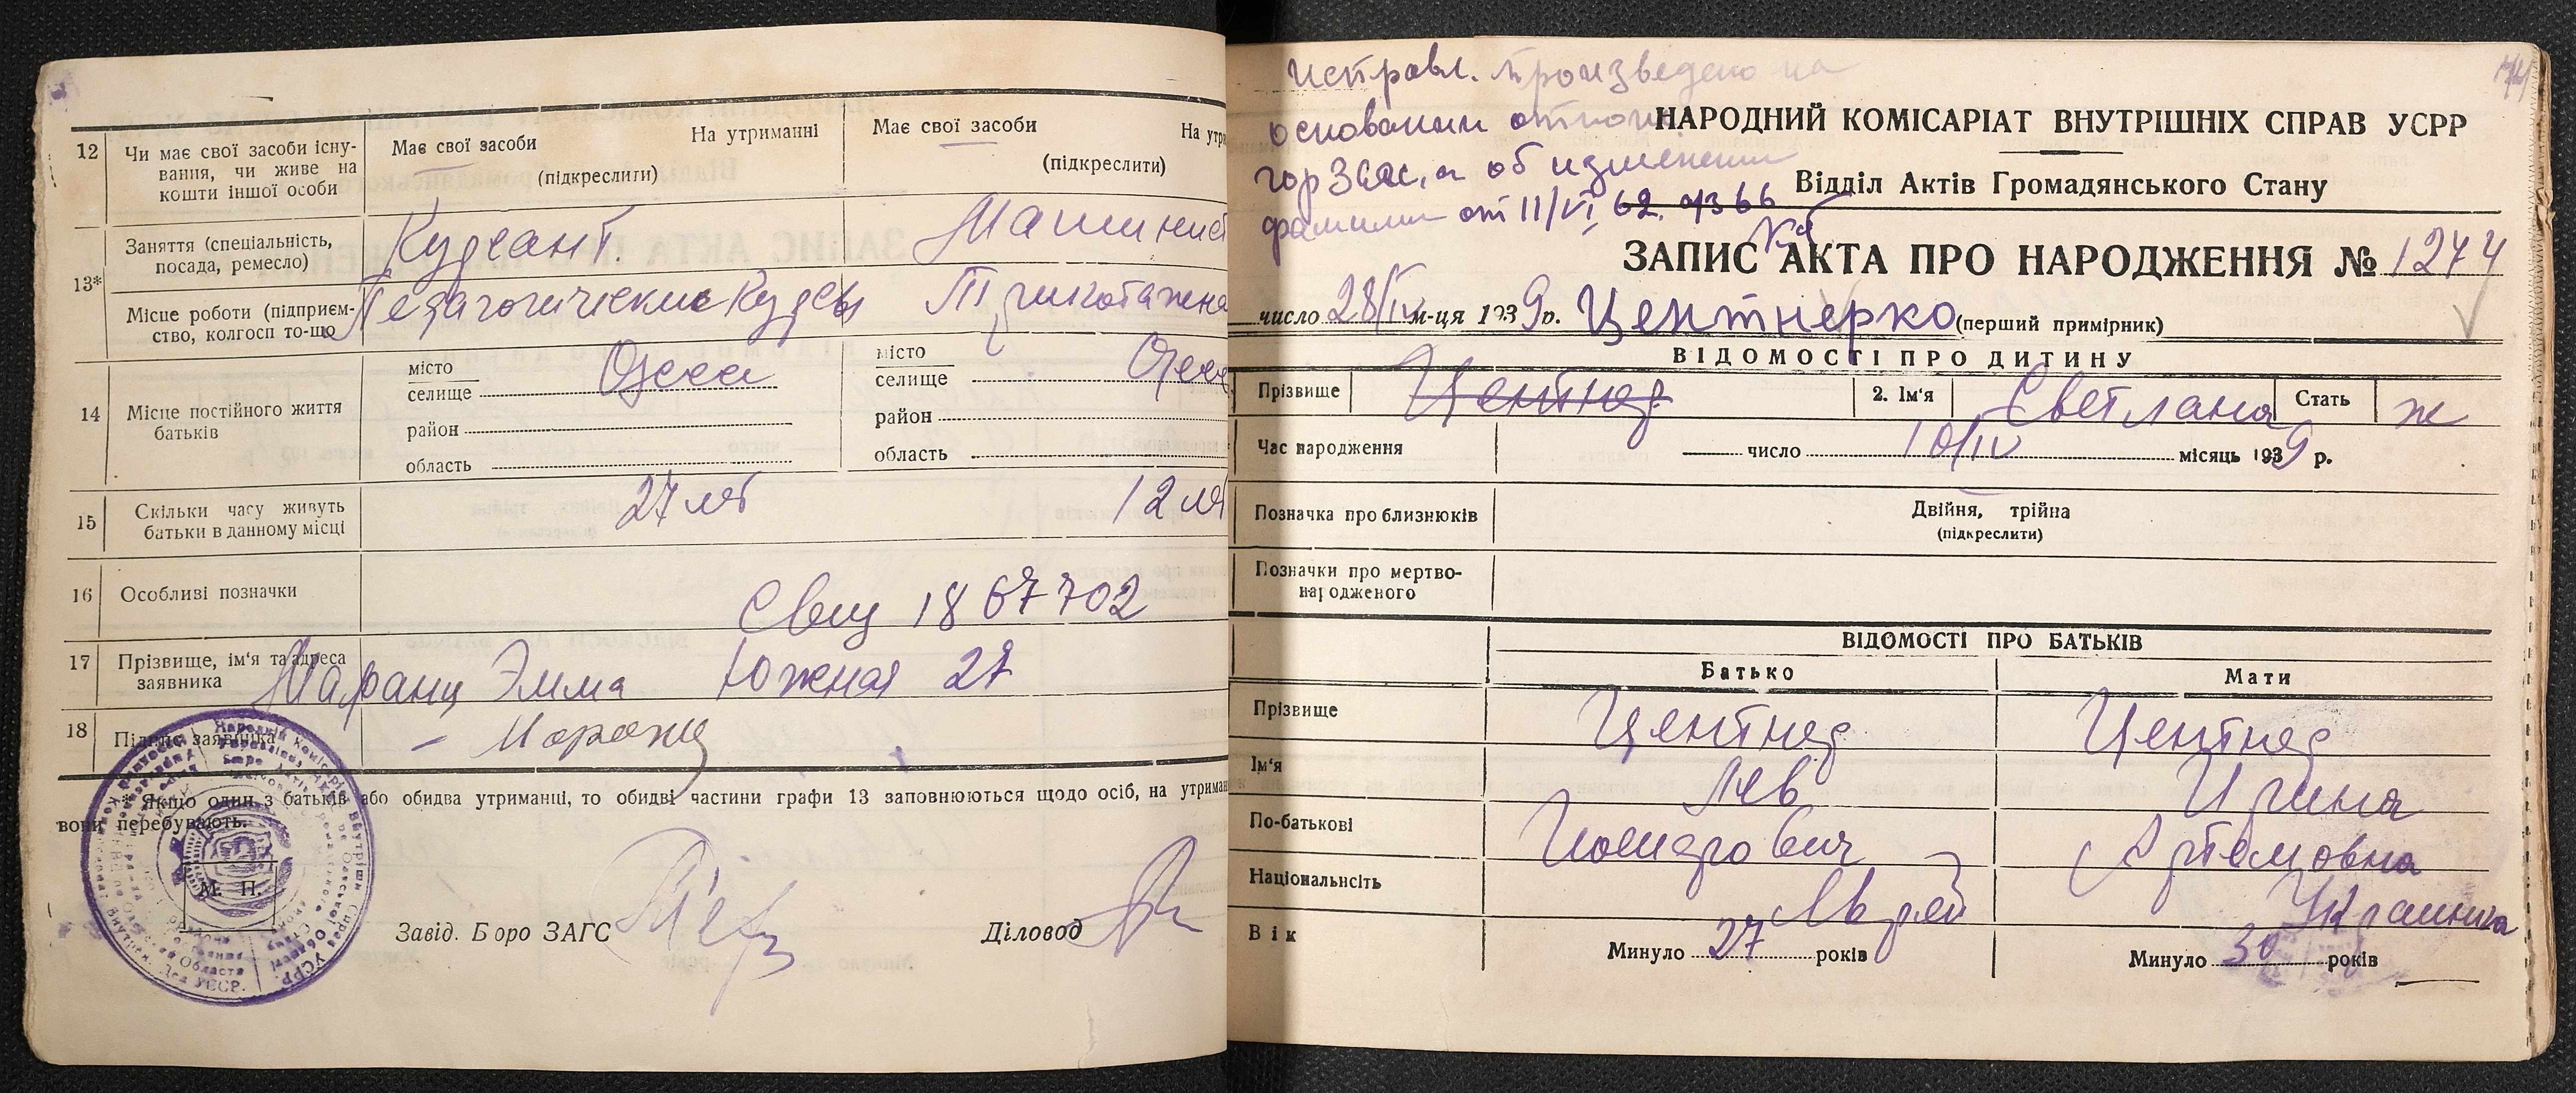 12
Чи має свої засоби існу-
вання, чи живе на
кошти іншої особи
Має свої засоби На утриманні
(підкреслити)
Має свої засоби На утри
(підкреслити)
13*
Заняття (спеціальність,
посада, ремесло)
Курсант.
Машинист
Місце роботи (підприєм-
ство, колгосп то-що
Педагогические Курсы
Трикотажна
14
Місце постійного життя
батьків
місто
селище Одесса
район
область
місто
селище Одесс
район
область
15
Скільки часу живуть
батьки в данному місці
27 лет
12 лет
16
Особливі позначки
Свид 1867702
17
Прізвище, ім'я та адреса
заявника
Маранц Эмма Южная 27
18
Підпис заявника
— Маранц
* Якщо один з батьків або обидва утриманці, то обидві частини графи 13 заповнюються щодо осіб, на утриман
вони перебувають.
М. П.
Завід. Бюро ЗАГС
Діловод
Исправл. произведено на
основании
гор Загс, а об изменении
фамилии от 11/VI, 62.
НАРОДНИЙ КОМІСАРІАТ ВНУТРІШНІХ СПРАВ УСРР
Відділ Актів Громадянського Стану
ЗАПИС АКТА ПРО НАРОДЖЕННЯ № 1274
число 28/IV м-ця 1939 р. Центнерко (перший примірник)
ВІДОМОСТІ ПРО ДИТИНУ
Прізвище Центнер 2. Ім'я Светлана Стать ж
Час народження число 10/IV місяць 1939 р.
Позначка про близнюків
Двійня, трійна
(підкреслити)
Позначки про мертво-
народженого
ВІДОМОСТІ ПРО БАТЬКІВ
Батько Мати
Прізвище Центнер Центнер
Ім'я Лев Ирина
По-батькові Артемовна
Національність Еврей Украинка
Вік Минуло 27 років Минуло 30 років